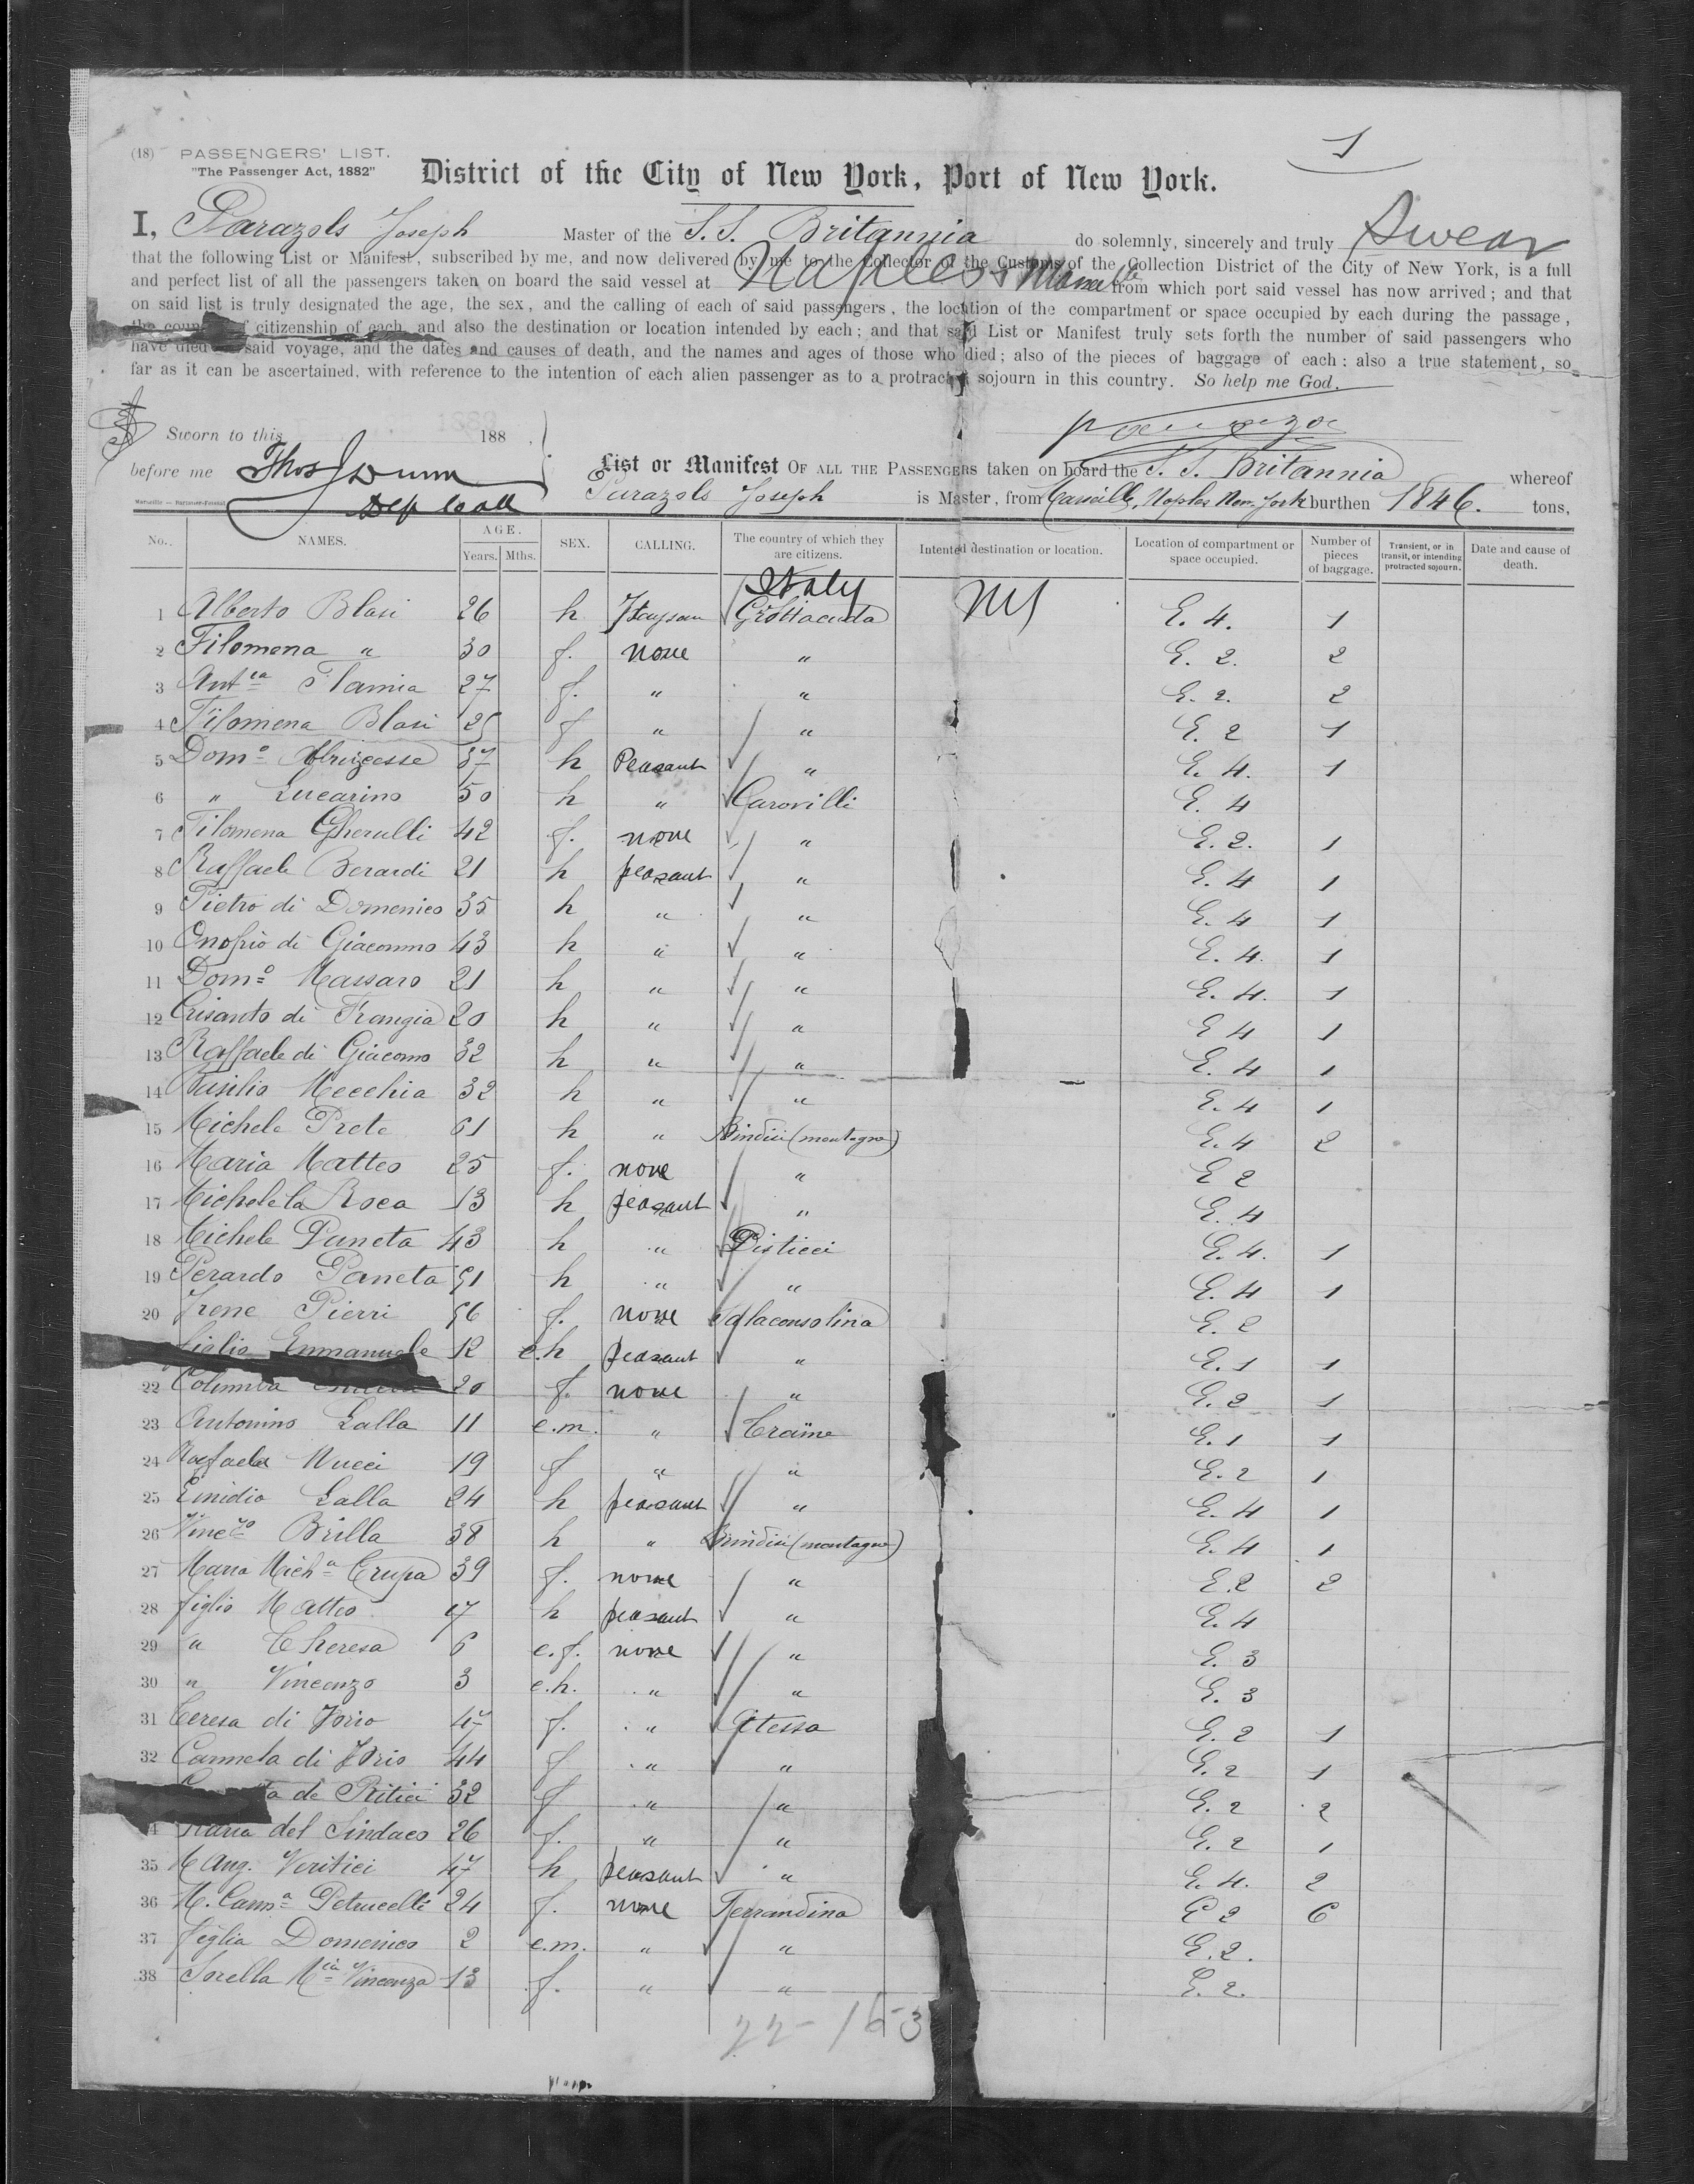 (18) PASSENGERS' LIST.
"The Passenger Act, 1882"
1
District of the City of New York, Port of New York.
I, Parazols Joseph Master of the S.S. Britannia do solemnly, sincerely and truly Swear
that the following List or Manifest, subscribed by me, and now delivered by me to the Collector of the Customs of the Collection District of the City of New York, is a full
and perfect list of all the passengers taken on board the said vessel at Naples from which port said vessel has now arrived; and that
on said list is truly designated the age, the sex, and the calling of each of said passengers, the location of the compartment or space occupied by each during the passage,
the country of citizenship of each, and also the destination or location intended by each; and that said List or Manifest truly sets forth the number of said passengers who
have died said voyage, and the dates and causes of death, and the names and ages of those who died; also of the pieces of baggage of each: also a true statement, so
far as it can be ascertained, with reference to the intention of each alien passenger as to a protracted sojourn in this country. So help me God.
Sworn to this 188
before me Thos J Dunn
Dep Coll
List or Manifest OF ALL THE PASSENGERS taken on board the S. S. Britannia whereof
Parazols Joseph is Master, from Marseille, Naples New-York burthen 1846. tons,
No. NAMES. AGE. Years. Mths. SEX. CALLING. The country of which they are citizens. Intented destination or location. Location of compartment or space occupied. Number of pieces of baggage. Transient, or in transit, or intending protracted sojourn. Date and cause of death.
Italy
1 Alberto Blasi 26 h NY E. 4. 1
2 Filomena " 30 f. none " E. 2. 2
3 Antia Flamia 27 f. " " E. 2. 2
4 Filomena Blasi 25 f " " E. 2 1
5 Domo 37 h Peasant " E. 4. 1
6 " Lucarino 50 h " Carovilli E. 4
7 Filomena Gherulli 42 f. none " E. 2. 1
8 Raffaele Berardi 21 h peasant " E. 4 1
9 Pietro di Domenico 35 h " " E. 4 1
10 Onofrio di Giacommo 43 h " " E. 4. 1
11 Domo Massaro 21 h " " E. 4. 1
12 Crisanto di Frangia 20 h " " E 4 1
13 Raffaele di Giacomo 32 h " " E. 4 1
14 Basilio Mecchia 32 h " " E. 4 1
15 Michele Prete 61 h " Bindisi (montagna) E. 4 2
16 Maria Matteo 25 f. none " E 2
17 Michele la Roca 13 h peasant " E. 4
18 Michele Puneta 43 h " Pisticci E. 4. 1
19 Perardo Paneta 51 h " " E. 4 1
20 Irene Pierri 56 f. none E. 2
figlio Emmanuele 12 e.h peasant " E. 1 1
22 Columba 20 f. none " E. 2 1
23 Antonino Lalla 11 e.m. " E. 1 1
24 Raffaela Mucci 19 f " " E. 2 1
25 Emidio Lalla 24 h peasant " E. 4 1
26 Vinczo Brilla 38 h " Brindisi (montagna) E. 4 1
27 Maria Micha Crupa 39 f. none " E. 2 2
28 figlio Matteo 17 h peasant " E. 4
29 " Theresa 6 e.f. none " E. 3
30 " Vincenzo 3 e.h. " " E. 3
31 Teresa di Jorio 47 f. " Atessa E. 2 1
32 Carmela di Jorio 44 f " " E. 2 1
de Ritici 32 f " " E. 2 2
4 Maria del Sindaco 26 f. " " E. 2 1
35 M Ang. Veritici 47 h peasant " E. 4. 2
36 M. Carma Petrucelli 24 f. none Ferrandina E 2 6
37 figlia Domenico 2 e.m. " " E. 2.
38 Sorella Mia Vincenza 13 f. " " E. 2.
22-163